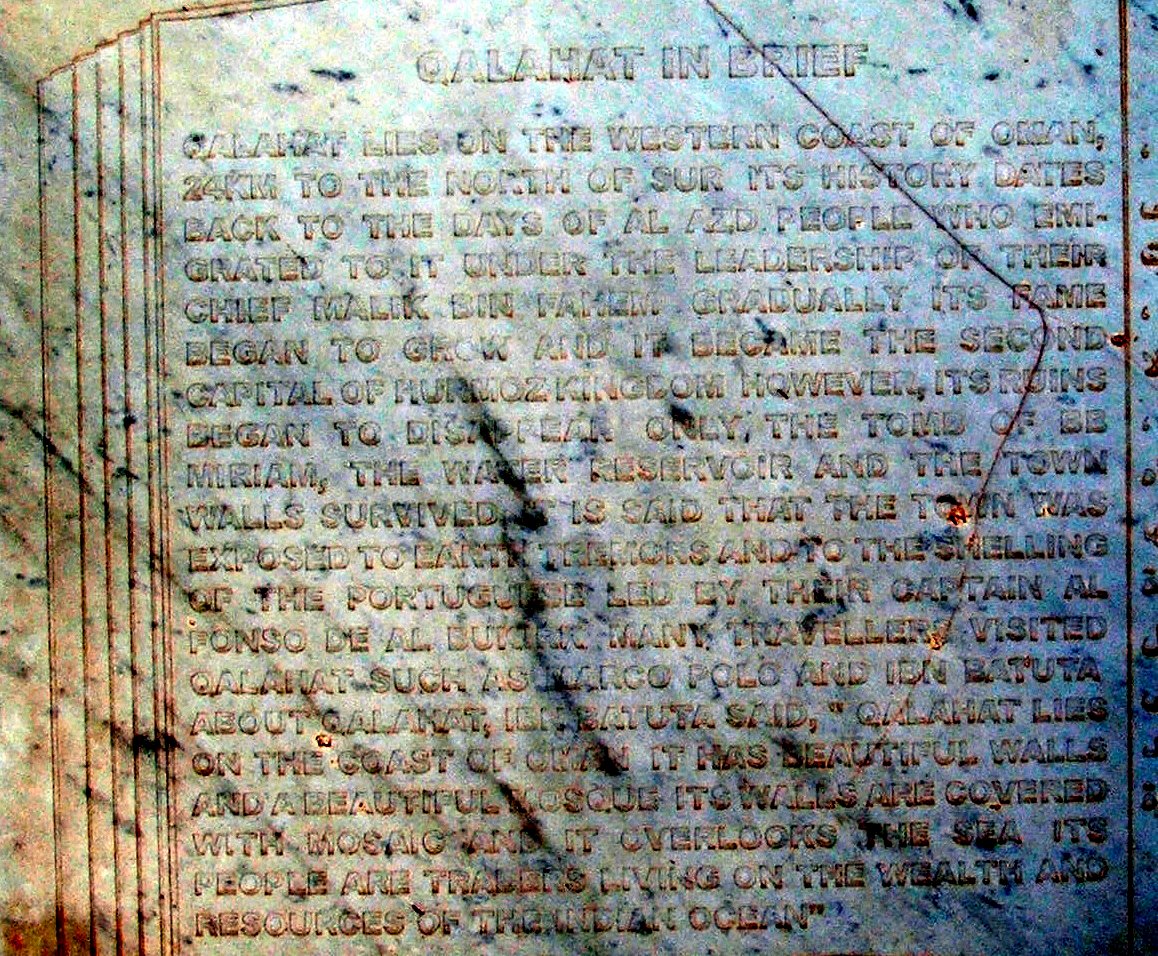 QALAHAT IN BRIEF
QALAHAT LIES ON THE WESTERN COAST OF OMAN,
24KM TO THE NORTH OF SUR ITS HISTORY DATES
BACK TO THE DAYS OF AL AZD PEOPLE WHO EMI-
GRATED TO IT UNDER THE LEADERSHIP OF THEIR
CHIEF MALIK BIN FAHEM GRADUALLY ITS FAME
BEGAN TO GROW AND IT BECAME THE SECOND
CAPITAL OF HURMOZ KINGDOM HOWEVER, ITS RUINS
BEGAN TO DISAPPEAR ONLY, THE TOMB OF BB
MIRIAM, THE WATER RESERVOIR AND THE TOWN
WALLS SURVIVED IT IS SAID THAT THE TOWN WAS
EXPOSED TO EARTH TREMORS AND TO THE SHELLING
OF THE PORTUGUESE LED BY THEIR CAPTAIN AL
FONSO DE AL BUKIRK MANY TRAVELLERS VISITED
QALAHAT SUCH AS MARCO POLO AND IBN BATUTA
ABOUT QALAHAT, IBN BATUTA SAID, " QALAHAT LIES
ON THE COAST OF OMAN IT HAS BEAUTIFUL WALLS
AND A BEAUTIFUL MOSQUE ITS WALLS ARE COVERED
WITH MOSAIC AND IT OVERLOOKS THE SEA ITS
PEOPLE ARE TRADERS LIVING ON THE WEALTH AND
RESOURCES OF THE INDIAN OCEAN"